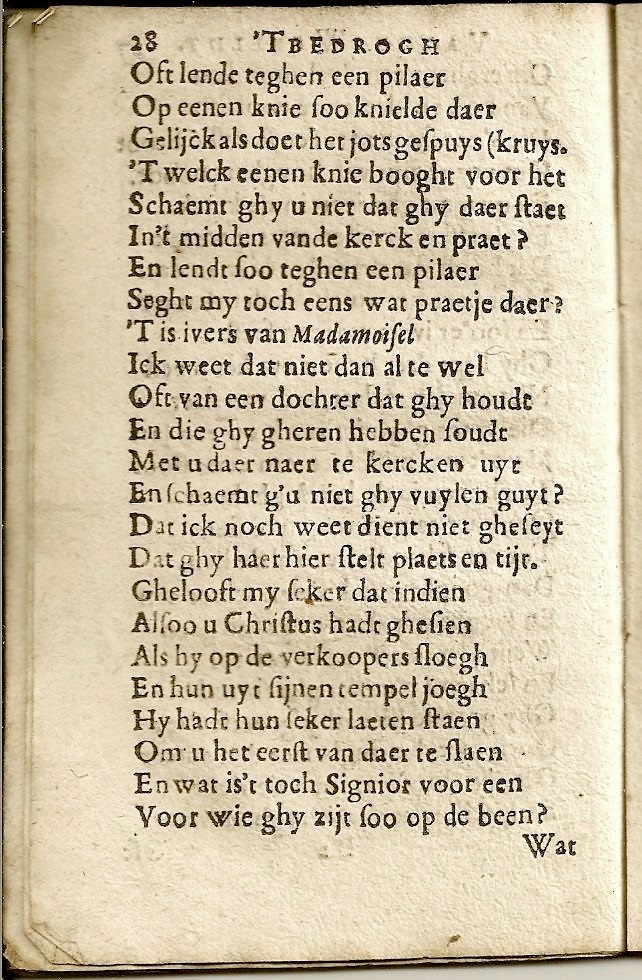 28 'TBEDROGH
Oft lende teghen een pilaer
Op eenen knie ſoo knielde daer
Gelijck als doet het jots geſpuys (kruys.
'T welck eenen knie booght voor het
Schaemt ghy u niet dat ghy daer ſtaet
In't midden vande kerck en praet?
En lendt ſoo teghen een pilaer
Seght my toch eens wat praetje daer?
'T is ivers van Madamoiſel
Ick weet dat niet dan al te wel
Oft van een dochter dat ghy houdt
En die ghy gheren hebben ſoudt
Met u daer naer te kercken uyt
En ſchaemt g'u niet ghy vuylen guyt?
Dat ick noch weet dient niet gheſeyt
Dat ghy haer hier ſtelt plaets en tijt.
Ghelooft my ſeker dat indien
Alſoo u Chriſtus hadt gheſien
Als hy op de verkoopers ſloegh
En hun uyt ſijnen tempel joegh
Hy hadt hun ſeker laeten ſtaen
Om u het eerſt van daer te ſlaen
En wat is't toch Signior voor een
Voor wie ghy zijt ſoo op de been?
Wat